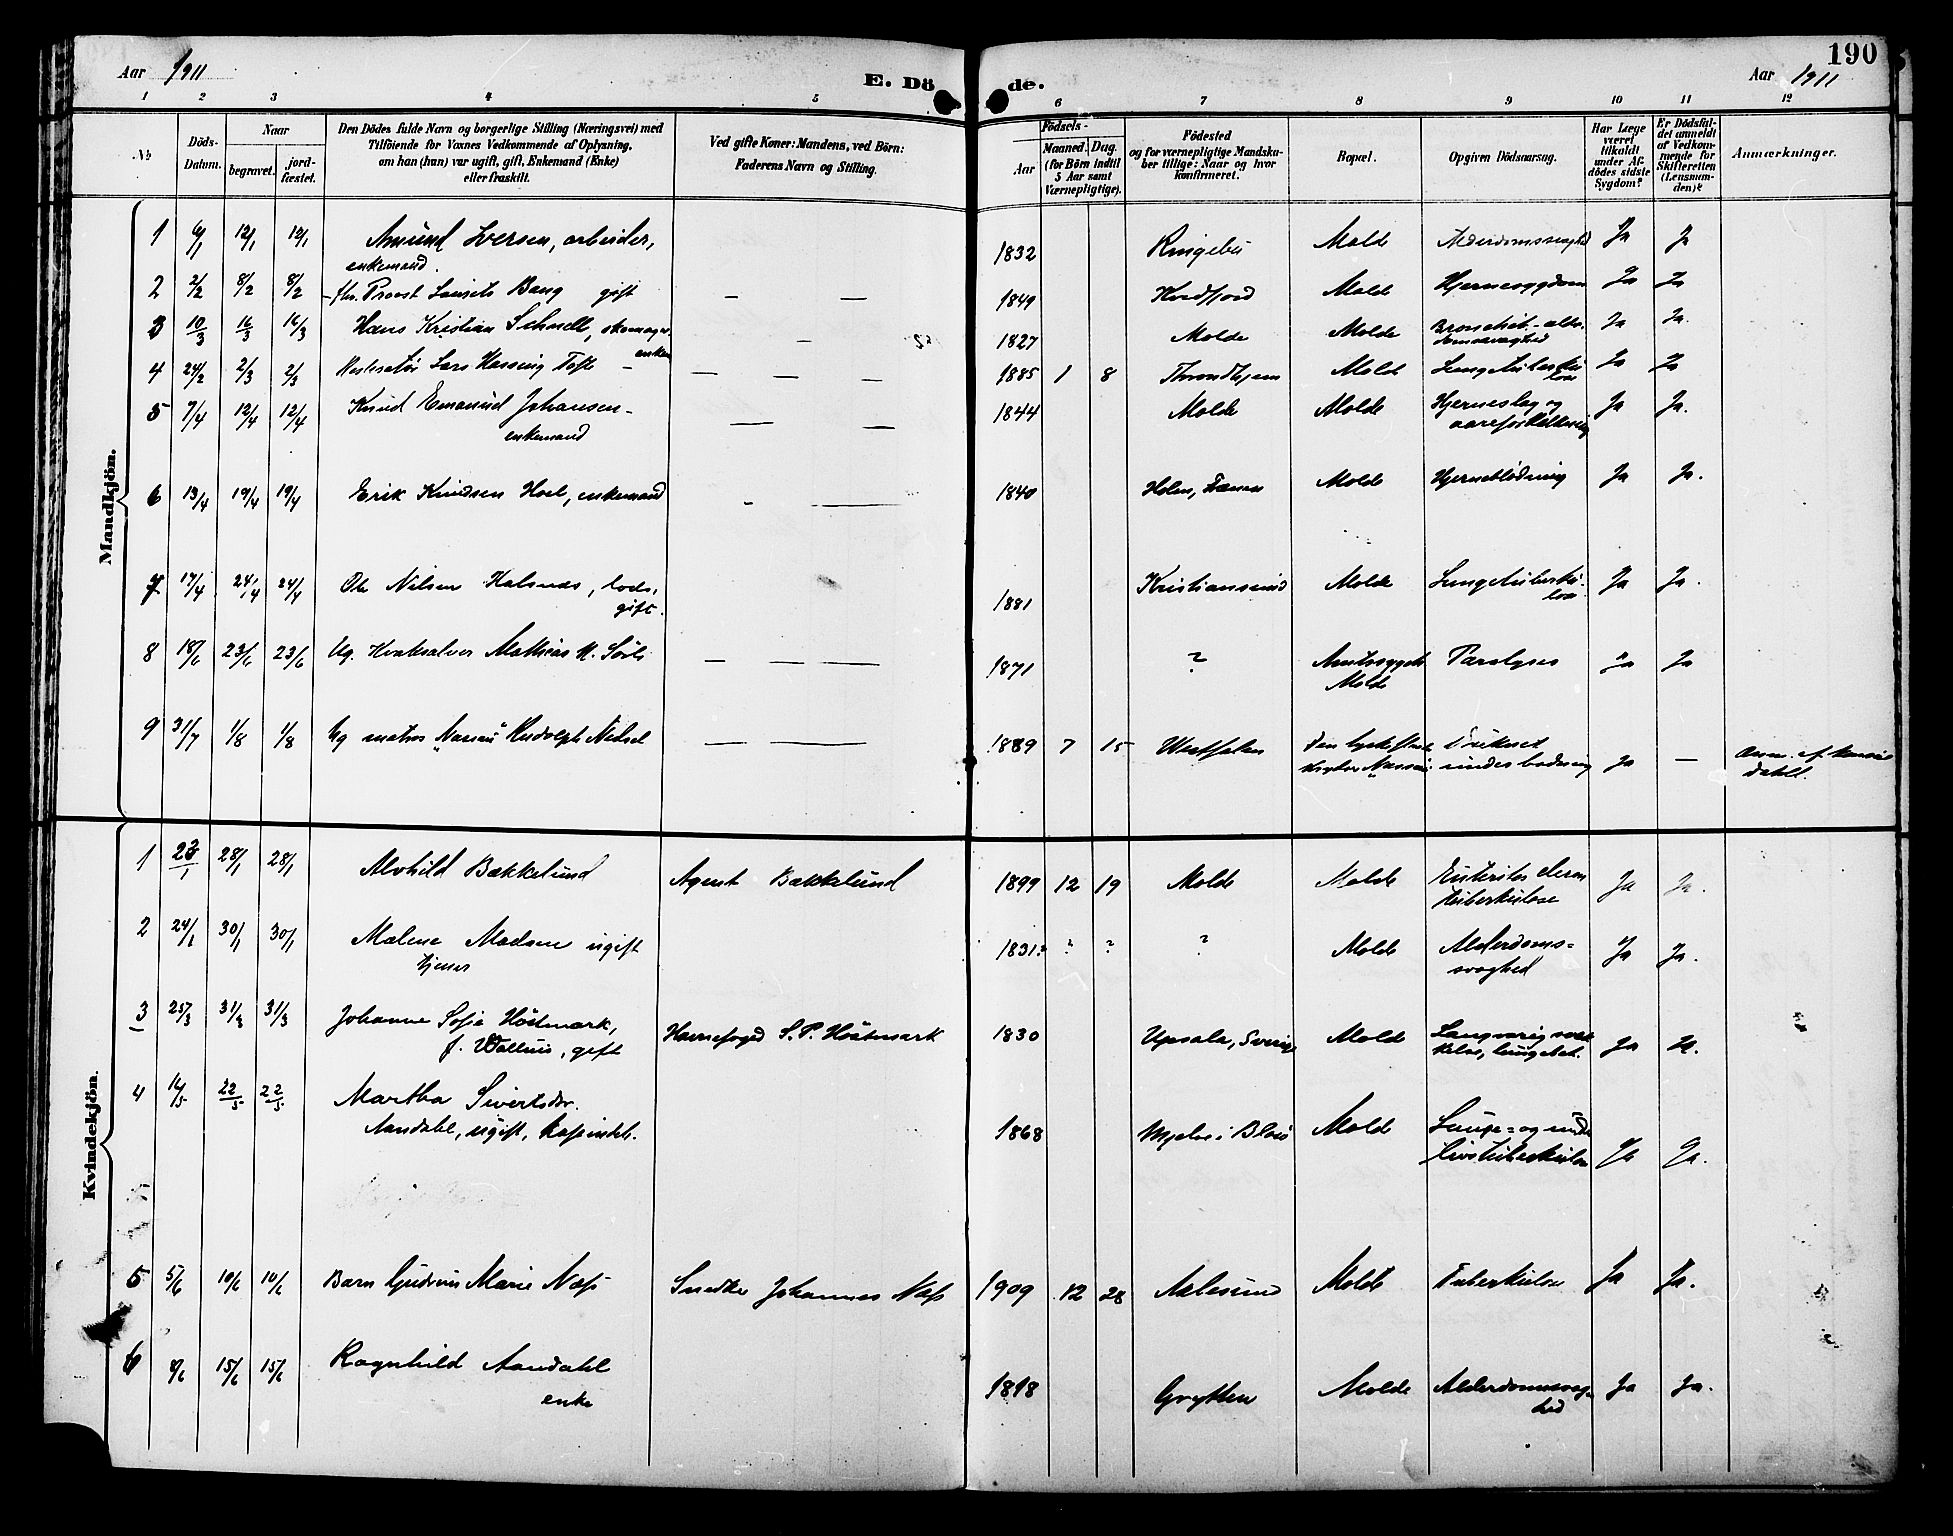 Aar 1911
E. Dö de.
Aar 1911
190
1 2 3 4 5 6 7 8 9 10 11 12
No
Döds-Datum.
Naar
begravet.
jord-fæstet.
Den Dödes fulde Navn og borgerlige Stilling (Næringsvei) med
Tilföiende for Voxnes Vedkommende af Oplysning,
om han (hun) var ugift, gift, Enkemand (Enke)
eller fraskilt.
Ved gifte Koner: Mandens, ved Börn:
Faderens Navn og Stilling.
Födsels-
Aar
Maaned. Dag.
(for Börn indtil
5 Aar samt
Værnepligtige).
Födested
og for værnepligtige Mandska-
ber tillige: Naar og hvor
konfirmeret.
Bopæl.
Opgiven Dödsaarsag.
Har Læge
været
tilkaldt
under Af-
dödes sidste
Sygdom?
Er Dödsfal-
det anmeldt
af Vedkom-
mende for
Skifteretten
(Lensman-
den)?
Anmærkninger.
Mandkjön.
1 6/1 12/1 12/1 Amund Iversen, arbeider, 1832 Ringebu Molde Alderdomssvaghed Ja Ja
enkemand.
2 2/2 8/2 8/2 fhv. Provst Laurits Bang gift — — 1849 Kvedfjord Molde Hjernesygdom Ja Ja
3 10/3 16/3 16/3 Hans Kristian Schnell, skomager - 1827 Molde Molde Bronchit-alder- Ja Ja.
domssvaghed
4 24/2 2/3 2/3 Lars Tofte — — — 1885 1 8 Throndhjem Molde Lungetuberku- Ja Ja
lose
5 7/4 12/4 12/4 Knud Emanuel Johansen - — — 1844 Molde Molde Hjerneslag og Ja Ja.
enkemand aareforkalkning
6 13/4 19/4 19/4 Erik Knudsen Hoel, enkemand - — 1840 Molde Hjerneblödning Ja Ja.
7 17/4 24/4 24/4 Ole Nilsen Kalsnes, lods, 1881 Kristianssund Molde Lungetuberku- Ja Ja.
gift. lose
8 18/6 23/6 23/6 Ug. Kvaksalver Mathias — — — 1871 ? Amtssygeh. Paralyses Ja Ja
Molde
9 31/7 1/8 1/8 Ug matros "Nassau" Rudolph — — 1889 7 15 Westfalen Den tyske Druknet
"Nassau" under badning Ja — Anm. af
Kvindekjön.
1 23/1 28/1 28/1 Alvhild Bækkelund Agent Bækkelund 1899 12 19 Molde Molde Enterites Ja Ja.
tuberkulose
2 24/1 30/1 30/1 Malene Madsen ugift 1831? ? ? ? Molde Alderdoms- Ja Ja.
tjener svaghed
3 25/3 31/3 31/3 Johanne Sofie Höstmark, Havnefoged S. P. Höstmark 1830 Upsala, Sverige Molde Langvarig Ja Ja.
f. Wallius, gift
4 14/5 22/5 22/5 Martha Sivertsdr. 1868 Molde Lunge- og under-
Aandahl, ugift, livstuberkulose Ja Ja.
5 5/6 10/6 10/6 Barn Gudrun Marie Næss Snedker Johannes Næss 1909 12 28 Aalesund Molde Tuberkulose Ja Ja.
6 9/6 15/6 15/6 Ragnhild Aandahl 1818 Grytten Molde Alderdomssvag- Ja Ja.
enke hed